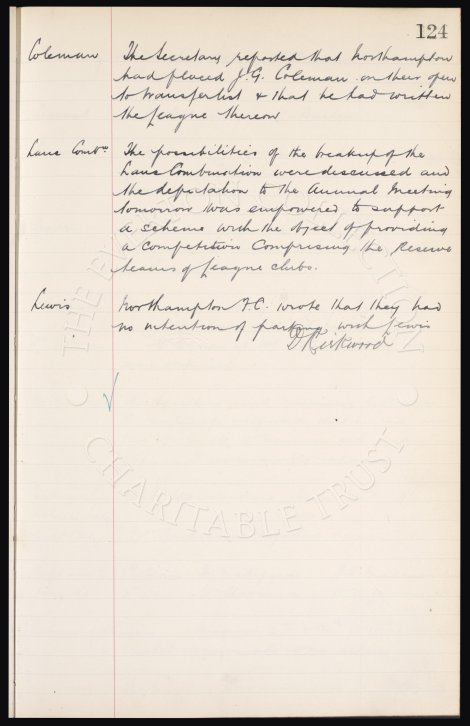 124
Coleman The Secretary reported that Northampton
had placed J.G. Coleman on their open
to transfer list & that he had written
the League thereon
Lancs Combn The possibilities of the breakup of the
Lancs Combination were discussed and
the deputation to the Annual Meeting
tomorrow was empowered to support
a scheme with the object of providing
a Competition Comprising the Reserve
teams of League clubs.
Lewis Northampton F.C. wrote that they had
no intention of parting with Lewis
D Kirkwood
THE EVERTON COLLECTION
CHARITABLE TRUST